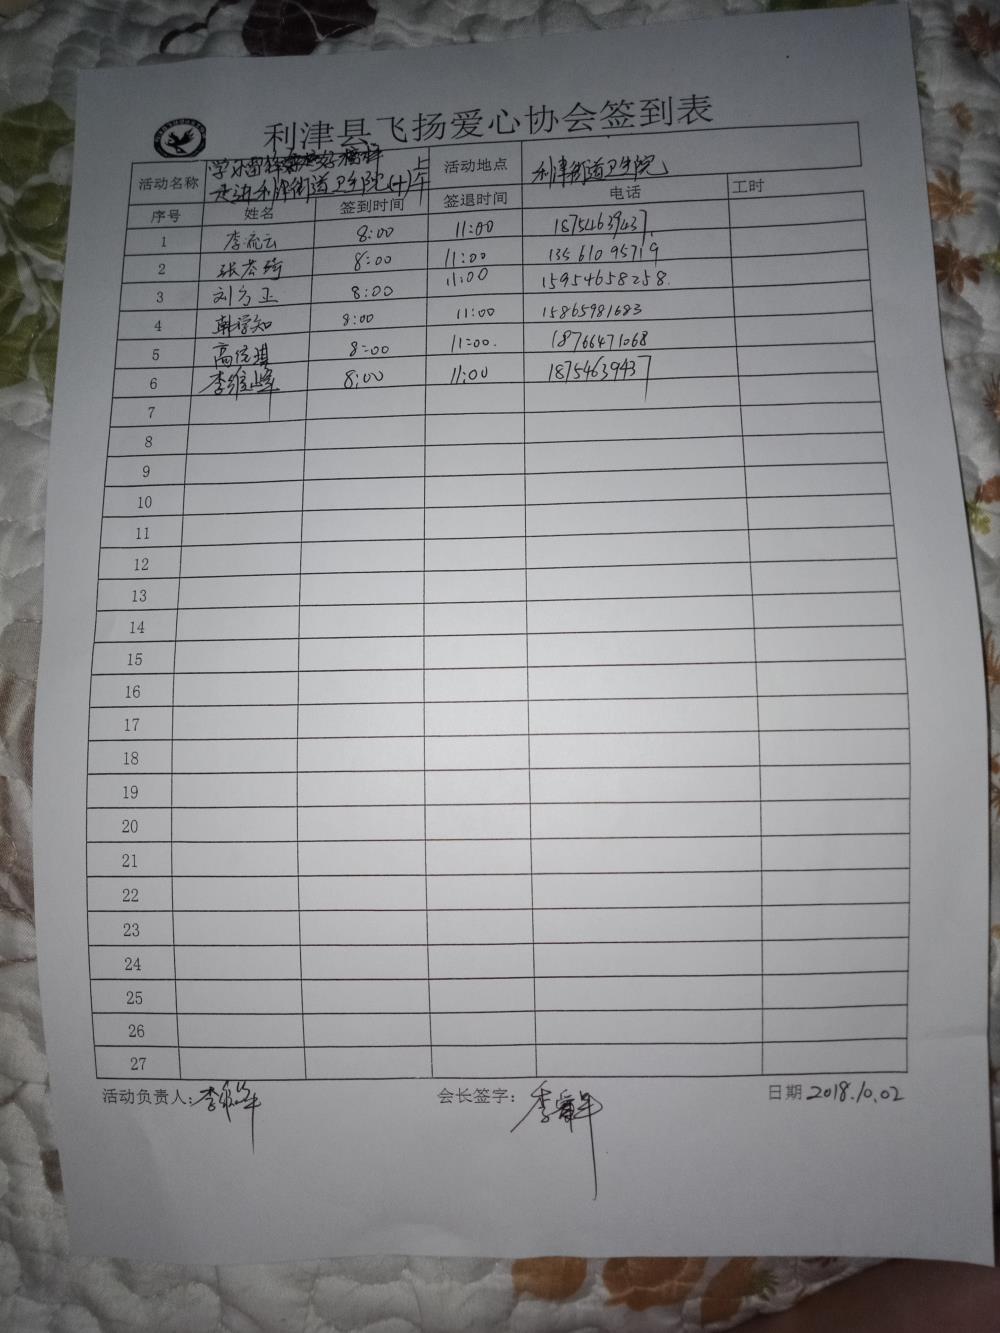 利津县飞扬爱心协会签到表
活动名称 学习雷锋 走进利津街道卫生院(十)上午 活动地点 利津街道卫生院
序号 姓名 签到时间 签退时间 电话 工时
1 李流云 8:00 11:00 18754639437
2 8:00 11:00 13561095719
3 刘方玉 8:00 11:00 15954658258
4 韩学知 8:00 11:00 15865981683
5 高信琪 8:00 11:00 18766471068
6 李维峰 8:00 11:00 18754639437
7
8
9
10
11
12
13
14
15
16
17
18
19
20
21
22
23
24
25
26
27
活动负责人: 李维峰 会长签字: 日期 2018.10.02